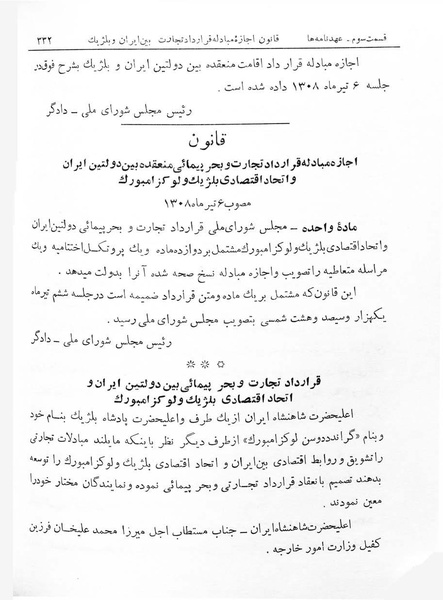 قسمت سوم ـ عهدنامه‌ها قانون اجازهٔ مبادله قرارداد تجارت بین ایران و بلژیک ۳۳۲
اجازه مبادله قرار داد اقامت منعقده بین دولتین ایران و بلژیک بشرح فوق در
جلسه ۶ تیر ماه ۱۳۰۸ داده شده است.
رئیس مجلس شورای ملی ـ دادگر
قانون
اجازه مبادله قرارداد تجارت و بحر پیمائی منعقده بین دولتین ایران
و اتحاد اقتصادی بلژیک و لوکزامبورک
مصوب ۶ تیر ماه ۱۳۰۸
مادهٔ واحده ـ مجلس شورای ملی قرارداد تجارت و بحر پیمائی دولتین ایران
و اتحاد اقتصادی بلژیک و لوکزامبورک مشتمل بر دوازده ماده و یک پروتکل اختتامیه و یک
مراسله متعاطیه را تصویب و اجازه مبادله نسخ صحه شده آنرا بدولت میدهد.
این قانون که مشتمل بریک ماده و متن قرارداد ضمیمه است در جلسه ششم تیر ماه
یکهزار و سیصد و هشت شمسی بتصویب مجلس شورای ملی رسید.
رئیس مجلس شورای ملی ـ دادگر
* * *
قرارداد تجارت و بحر پیمائی بین دولتین ایران و
اتحاد اقتصادی بلژیک و لوکزامبورک
اعلیحضرت شاهنشاه ایران از یک طرف و اعلیحضرت پادشاه بلژیک بنام خود
و بنام «گراند دوسن لوکزامبورک» از طرف دیگر نظر باینکه مایلند مبادلات تجارتی
را تشویق و روابط اقتصادی بین ایران و اتحاد اقتصادی بلژیک و لوکزامبورک را توسعه
بدهند تصمیم بانعقاد قرارداد تجارتی و بحر پیمائی نموده و نمایندگان مختار خود را
معین نمودند.
اعلیحضرت شاهنشاه ایران ـ جناب مستطاب اجل میرزا محمد علیخان فرزین
کفیل وزارت امور خارجه.